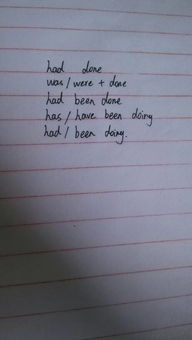 had done
was/were + done
had been done
has/have been doing
had/been doing.